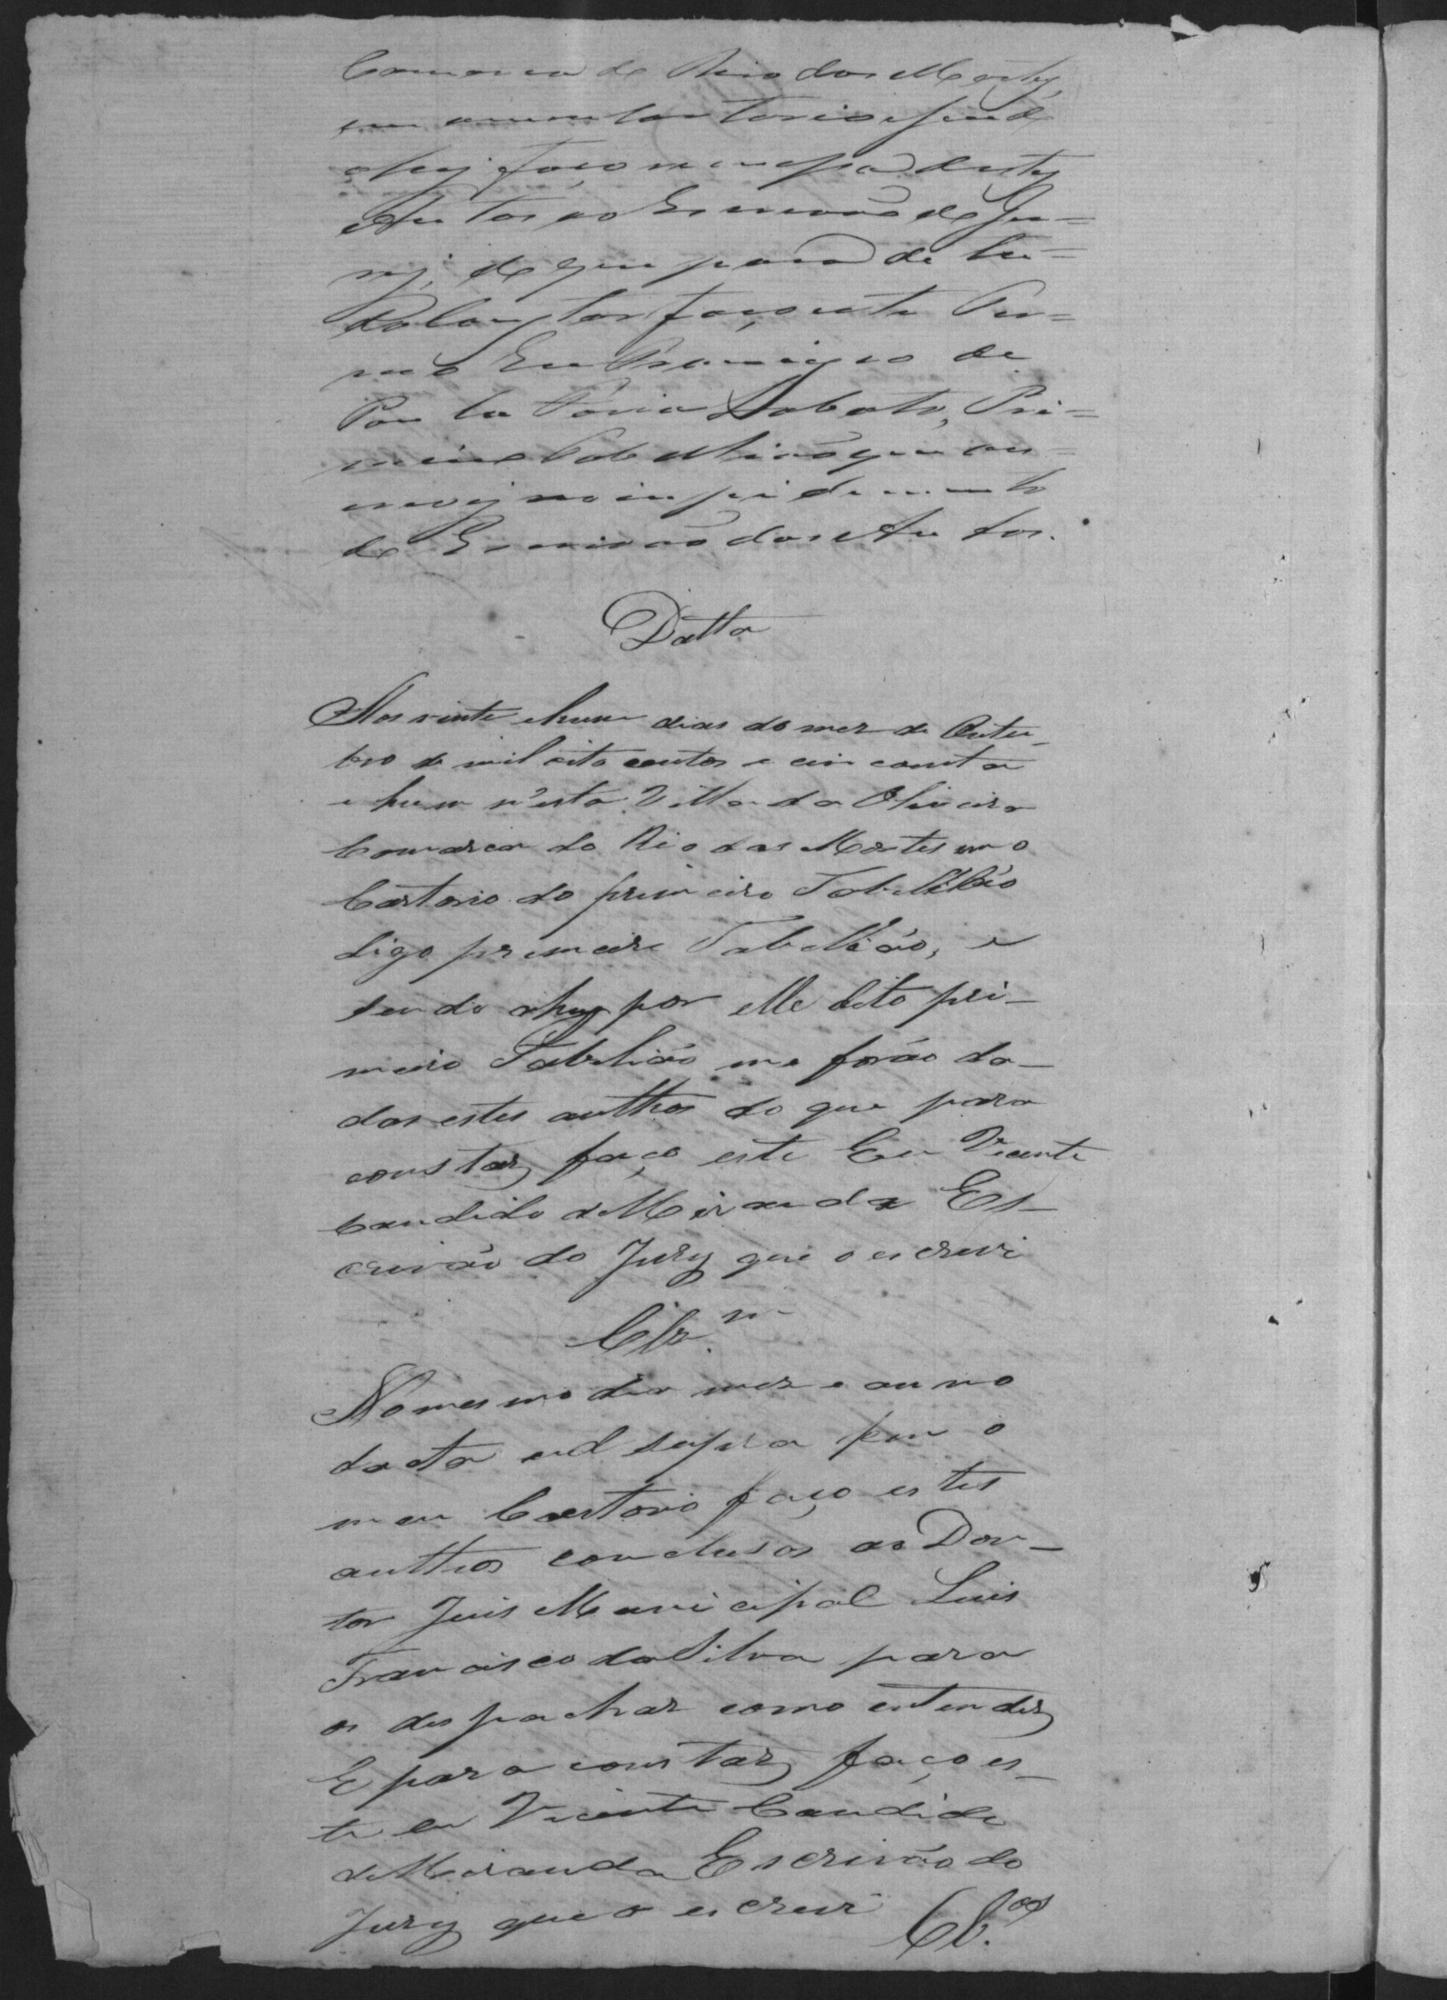 Comarca do Rio das Mortes,
em meu Cartorio e sendo
ahy faço remessa destes
Autos ao Escrivão do Ju=
ry, de que para de tu=
do constar faço este Ter=
mo Eu Francisco de
Paula Faria Lobato, Pri=
meiro Tabellião que es=
crevy no impedimento
do Escrivão dos Autos.
Datta
Aos vinte e hum dias do mez de Outu_
bro de mil oito centos e cincoenta
e hum n'esta Villa da Oliveira
Comarca do Rio das Mortes em o
Cartorio do primeiro Tabellião
digo primeiro Tabellião, e
sendo ahy por elle dito pri_
meiro Tabelião me forão da_
dos estes authos do que para
constar faço este Eu Vicente
Candido de Miranda Es_
crivão do Jury que o escrevi
Clz.m
No mesmo dia mez e anno
dacta ud supra em o
meu Cartorio faço estes
authos conclusos ao Dou_
tor Juis Municipal Luis
Francisco da Silva para
os despachar como entender
E para constar faço es_
te eu Vicente Candido
de Miranda Escrivão do
Jury que o escrevi